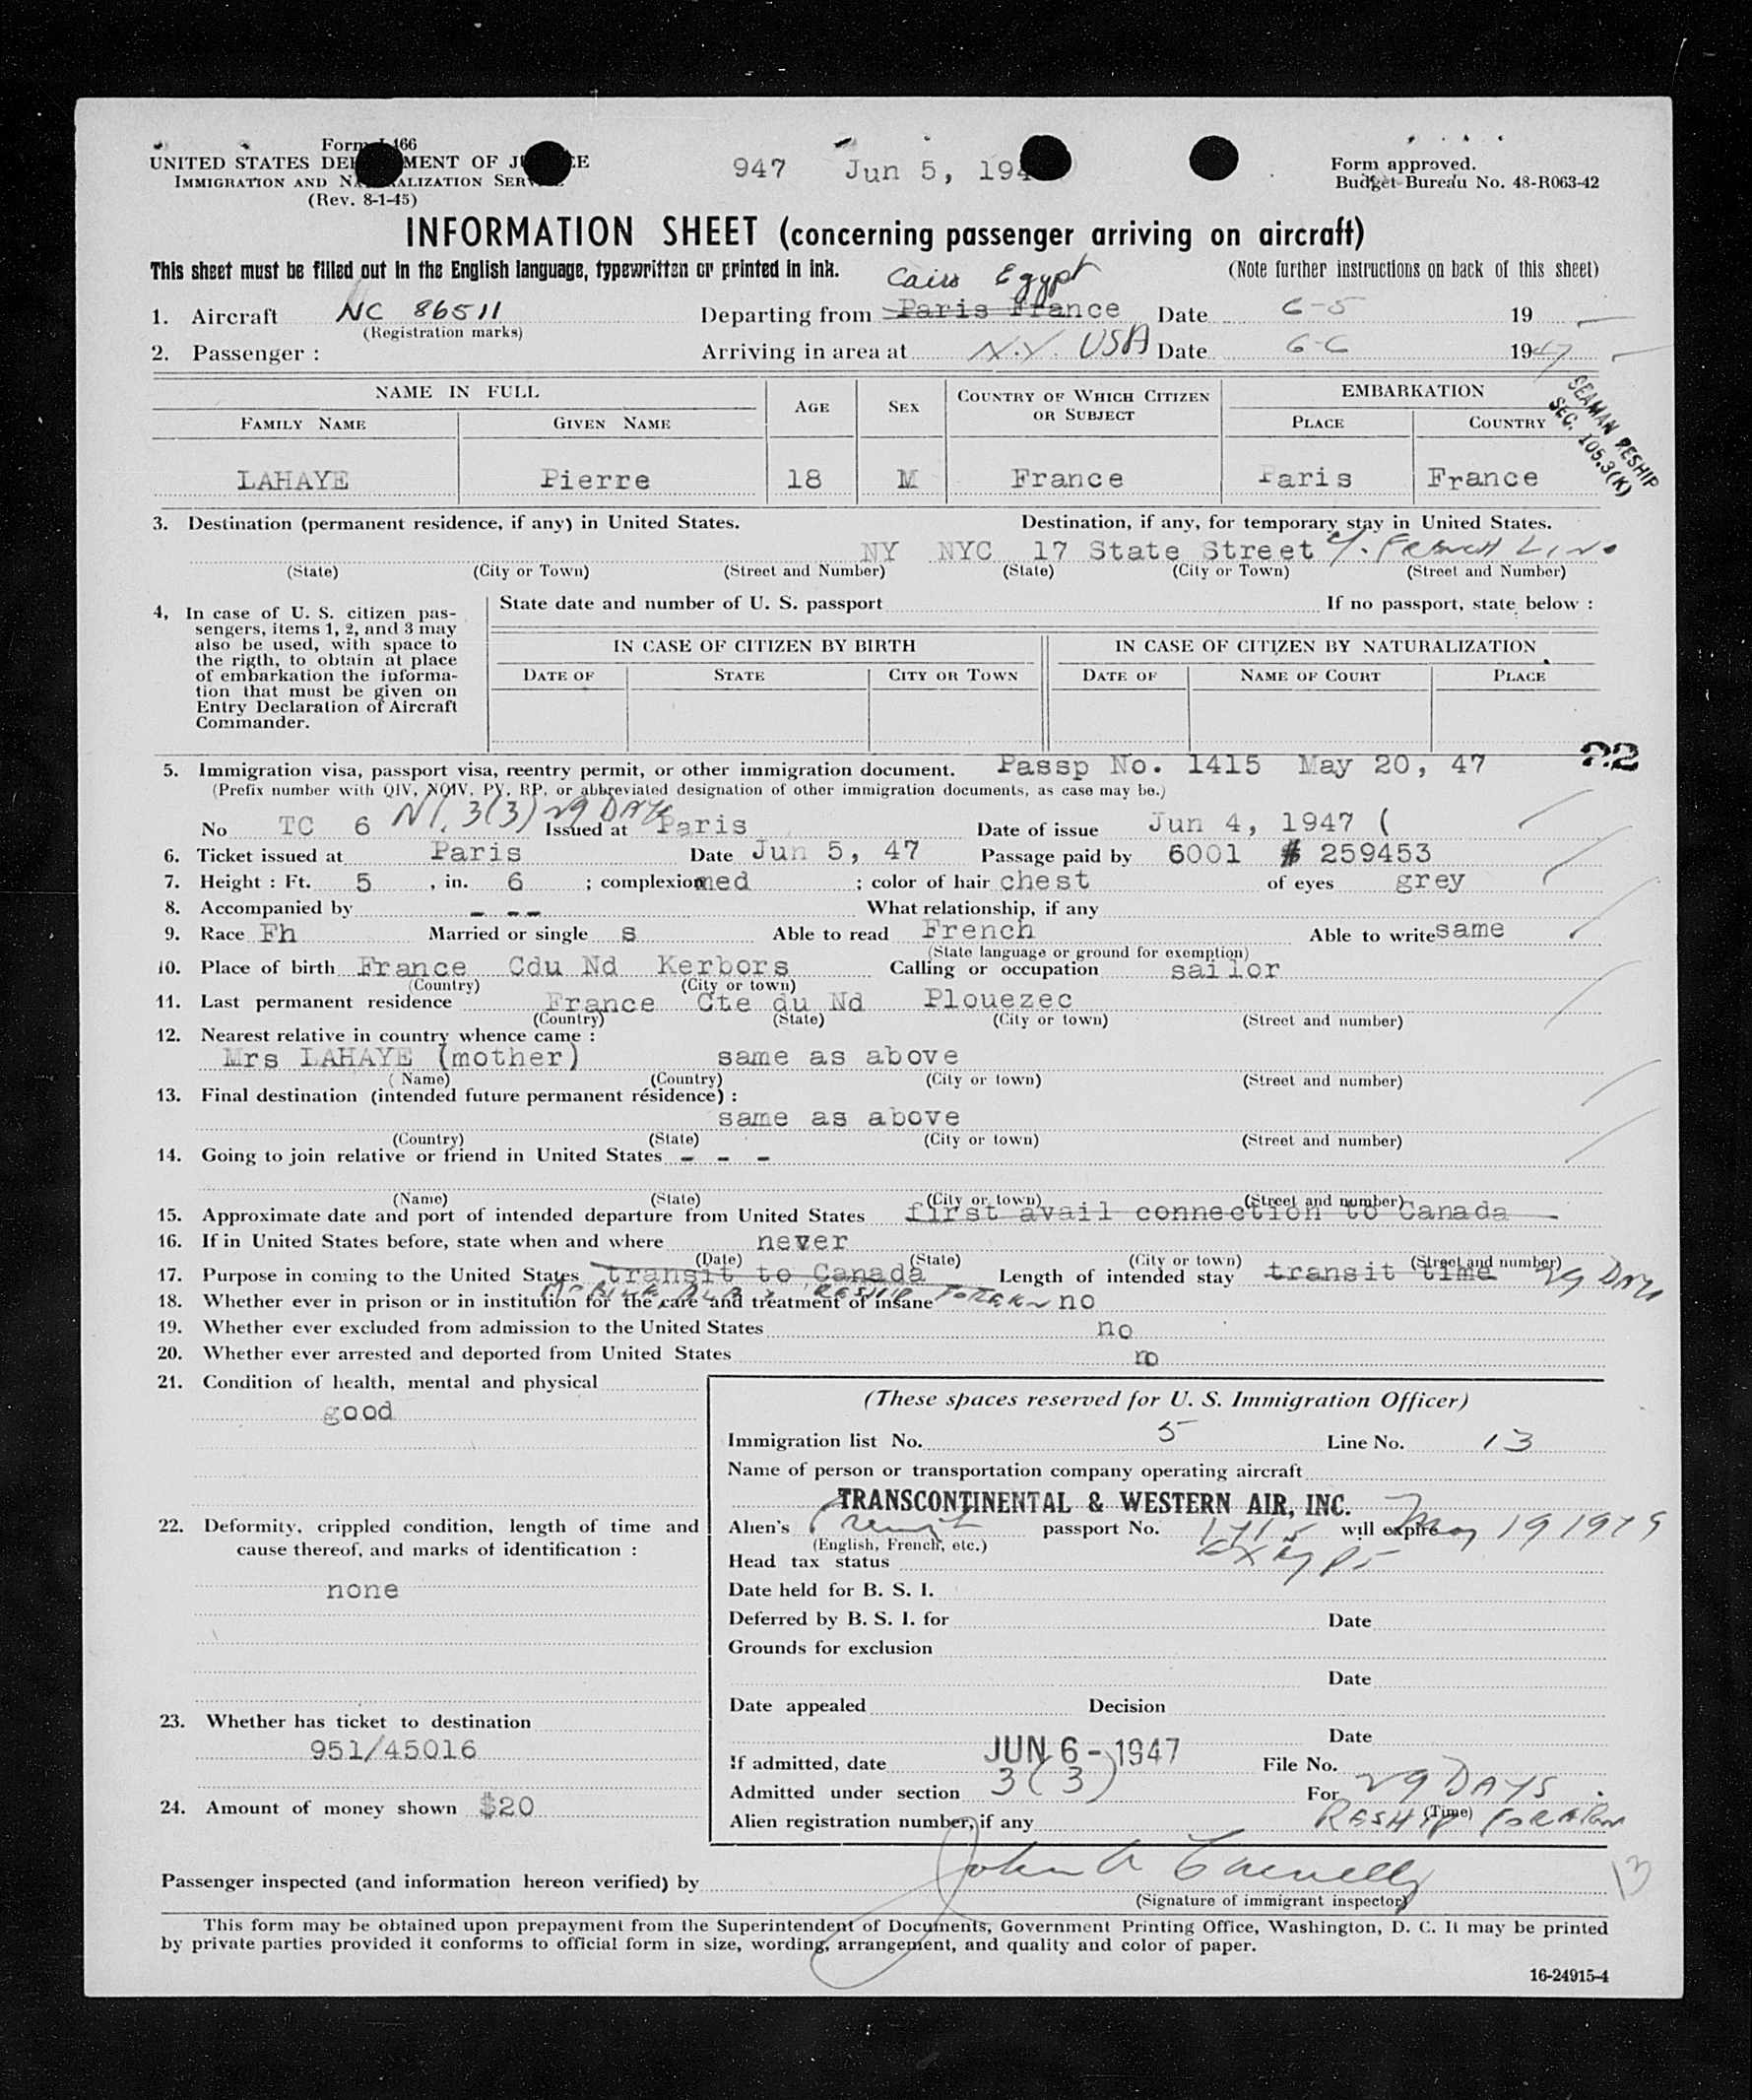 Form I-466
UNITED STATES DEPARTMENT OF JUSTICE
IMMIGRATION AND NATURALIZATION SERVICE
(Rev. 8-1-45)
947 Jun 5, 194
Form approved.
Budget Bureau No. 48-R063-42
INFORMATION SHEET (concerning passenger arriving on aircraft)
This sheet must be filled out in the English language, typewritten or printed in ink.
(Note further instructions on back of this sheet)
Cairo Egypt
1. Aircraft NC 86511 Departing from Paris France Date 6-5 19
(Registration marks)
2. Passenger : Arriving in area at N.Y. USA Date 6-6 1947
SEAMAN RESHIP
SEC. 105.3(K)
NAME IN FULL AGE SEX COUNTRY OF WHICH CITIZEN OR SUBJECT EMBARKATION
FAMILY NAME GIVEN NAME PLACE COUNTRY
LAHAYE Pierre 18 M France Paris France
3. Destination (permanent residence, if any) in United States. Destination, if any, for temporary stay in United States.
NY NYC 17 State Street % French Line
(State) (City or Town) (Street and Number) (State) (City or Town) (Street and Number)
4, In case of U. S. citizen pas-
sengers, items 1, 2, and 3 may
also be used, with space to
the rigth, to obtain at place
of embarkation the informa-
tion that must be given on
Entry Declaration of Aircraft
Commander.
State date and number of U. S. passport If no passport, state below :
IN CASE OF CITIZEN BY BIRTH IN CASE OF CITIZEN BY NATURALIZATION
DATE OF STATE CITY OR TOWN DATE OF NAME OF COURT PLACE
22
5. Immigration visa, passport visa, reentry permit, or other immigration document. Passp No. 1415 May 20, 47
(Prefix number with QIV, NQIV, PV, RP, or abbreviated designation of other immigration documents, as case may be.)
No TC 6 3(3) 29 DAYS Issued at Paris Date of issue Jun 4, 1947 (
6. Ticket issued at Paris Date Jun 5, 47 Passage paid by 6001 # 259453
7. Height : Ft. 5 , in. 6 ; complexion med ; color of hair chest of eyes grey
8. Accompanied by - -- What relationship, if any
9. Race Fh Married or single s Able to read French Able to write same
(State language or ground for exemption)
10. Place of birth France Cdu Nd Kerbors Calling or occupation sailor
(Country) (City or town)
11. Last permanent residence France Cte du Nd Plouezec
(Country) (State) (City or town) (Street and number)
12. Nearest relative in country whence came :
Mrs LAHAYE (mother) same as above
( Name) (Country) (City or town) (Street and number)
13. Final destination (intended future permanent résidence) :
same as above
(Country) (State) (City or town) (Street and number)
14. Going to join relative or friend in United States - - -
(Name) (State) (City or town) (Street and number)
15. Approximate date and port of intended departure from United States first avail connection to Canada
16. If in United States before, state when and where never
(Date) (State) (City or town) (Street and number)
17. Purpose in coming to the United States transit to Canada Length of intended stay transit time 29 Days
RESHIP FOREIGN
18. Whether ever in prison or in institution for the care and treatment of insane no
19. Whether ever excluded from admission to the United States no
20. Whether ever arrested and deported from United States no
21. Condition of health, mental and physical
good
22. Deformity, crippled condition, length of time and
cause thereof, and marks of identification :
none
23. Whether has ticket to destination
951/45016
24. Amount of money shown $20
(These spaces reserved for U. S. Immigration Officer)
Immigration list No. 5 Line No. 13
Name of person or transportation company operating aircraft
TRANSCONTINENTAL & WESTERN AIR, INC.
Alien's French passport No. 1415 will expire May 19 1949
(English, French, etc.)
Head tax status Exempt
Date held for B. S. I.
Deferred by B. S. I. for Date
Grounds for exclusion
Date
Date appealed Decision
Date
If admitted, date JUN 6 - 1947 File No.
Admitted under section 3(3) For 29 DAYS
(Time)
Alien registration number, if any RESHIP FOREIGN
Passenger inspected (and information hereon verified) by John A 13
(Signature of immigrant inspector)
This form may be obtained upon prepayment from the Superintendent of Documents, Government Printing Office, Washington, D. C. It may be printed
by private parties provided it conforms to official form in size, wording, arrangement, and quality and color of paper.
16-24915-4